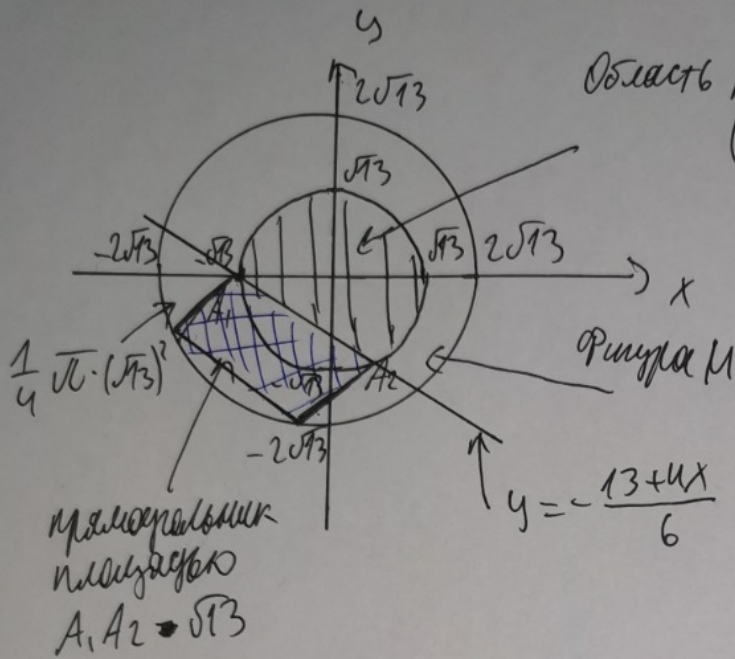 y
2√13
Область
√13
-2√13
-√13
√13
2√13
x
A₁
1/4 π·(√13)²
Фигура M
-√13
A₂
-2√13
y = - (13+4x)/6
прямоугольник
площадью
A₁A₂ • √13